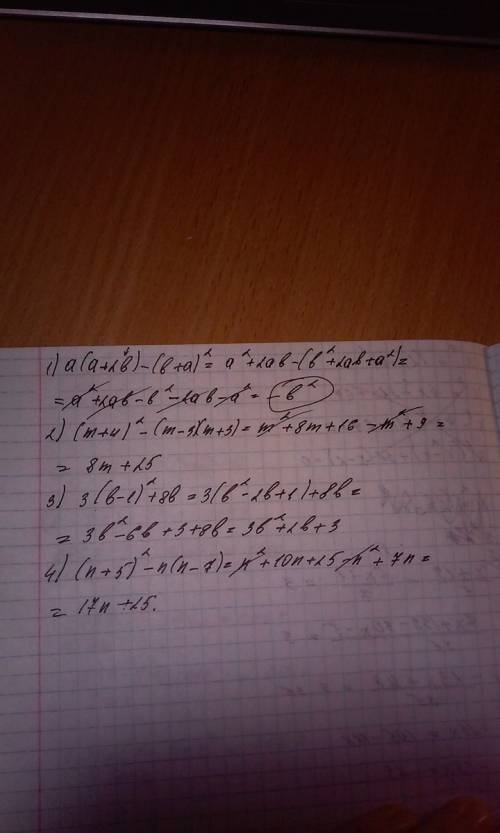 1) a(a+2b)-(b+a)²= a²+2ab-(b²+2ab+a²)=
= a²+2ab-b²-2ab-a² = -b²
2) (m+4)²-(m-3)(m+3)= m²+8m+16-m²+9=
= 8m+25
3) 3(b-1)²+8b=3(b²-2b+1)+8b=
= 3b²-6b+3+8b=3b²+2b+3
4) (n+5)²-n(n-7)=n²+10n+25-n²+7n=
= 17n+25.